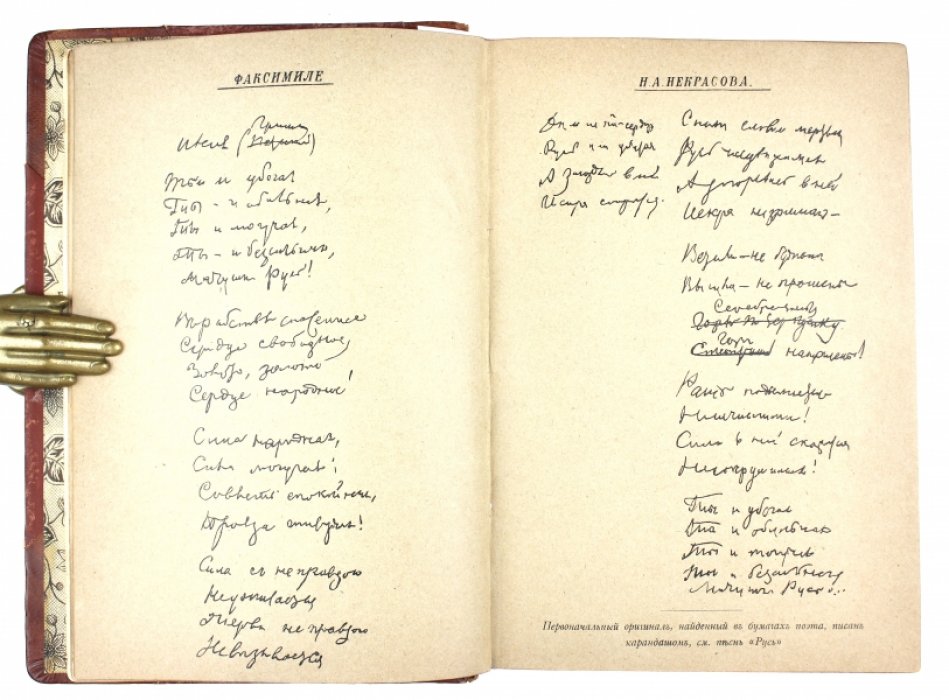 ФАКСИМИЛЕ
Пѣсня (Гриши)
Ты и убогая
Ты - и обильная,
Ты и могучая,
Ты - и безсильная,
Матушка Русь!
Въ рабствѣ спасенное
Сердце свободное,
Золото, золото
Сердце народное!
Сила народная,
Сила могучая!
Совѣсть спокойная,
Правда живучая!
Сила съ неправдою
Неуживается
Жертва неправдою
Невызывается
Н.А.НЕКРАСОВА.
Русь какъ убитая
А
въ ней
Искра сокрытая.
Русь недвижимая
А
въ ней
Искра незримая -
Встали - не бужены
Вышли - не прошены
Горы
наношены!
Рать подымается
Неисчислимая!
Сила въ ней скажется
Несокрушимая!
Ты и убогая
Ты и обильная
Ты и
Ты и безсильная
Матушка Русь!..
Первоначальный оригиналъ, найденный въ бумагахъ поэта, писанъ
карандашомъ, см. пѣснь «Русь»